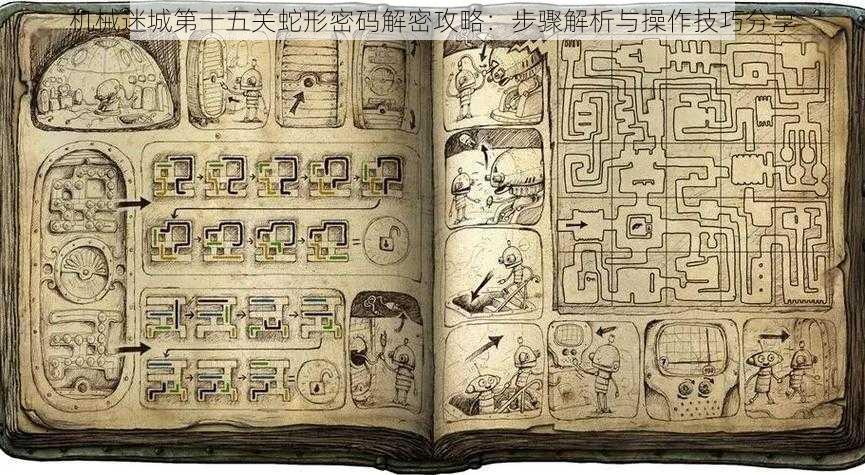 机械迷城第十五关蛇形密码解密攻略：步骤解析与操作技巧分享
7